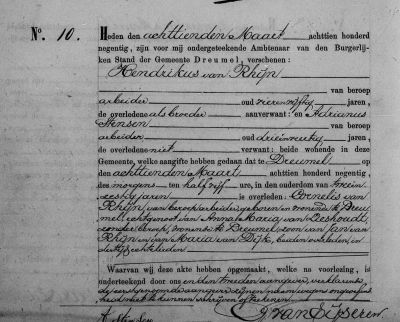 No. 10.
Heden den achttienden Maart achttien honderd
negentig, zijn voor mij ondergeteekende Ambtenaar van den Burgerlij-
ken Stand der Gemeente Dreumel, verschenen:
Hendrikus van Rhijn
van beroep
arbeider oud vierenvijftig jaren,
de overledene als broeder aanverwant: en Adrianus
Stensen van beroep
arbeider oud drieënveertig jaren,
de overledene niet verwant: beide wonende in deze
Gemeente, welke aangifte hebben gedaan dat te Dreumel op
den achttienden Maart achttien honderd negentig,
des morgens ten half vijf ure, in den ouderdom van
zestig jaren is overleden: Cornelis van
Rhijn, van beroep arbeider, geboren en wonend te Dreu-
mel, echtgenoot van Anna Maria van Leshoudt,
zonder beroep, wonende te Dreumel, zoon van Jan van
Rhijn en van Maria van Dijk, beiden overleden, in
echtelieden
Waarvan wij deze akte hebben opgemaakt, welke na voorlezing, is
onderteekend door ons en den tweeden aangever, verklarende
de eerstgenoemde aangever zijnen naam wegens ongeoefend-
heid niet te kunnen schrijven of teekenen.
A. Stensen